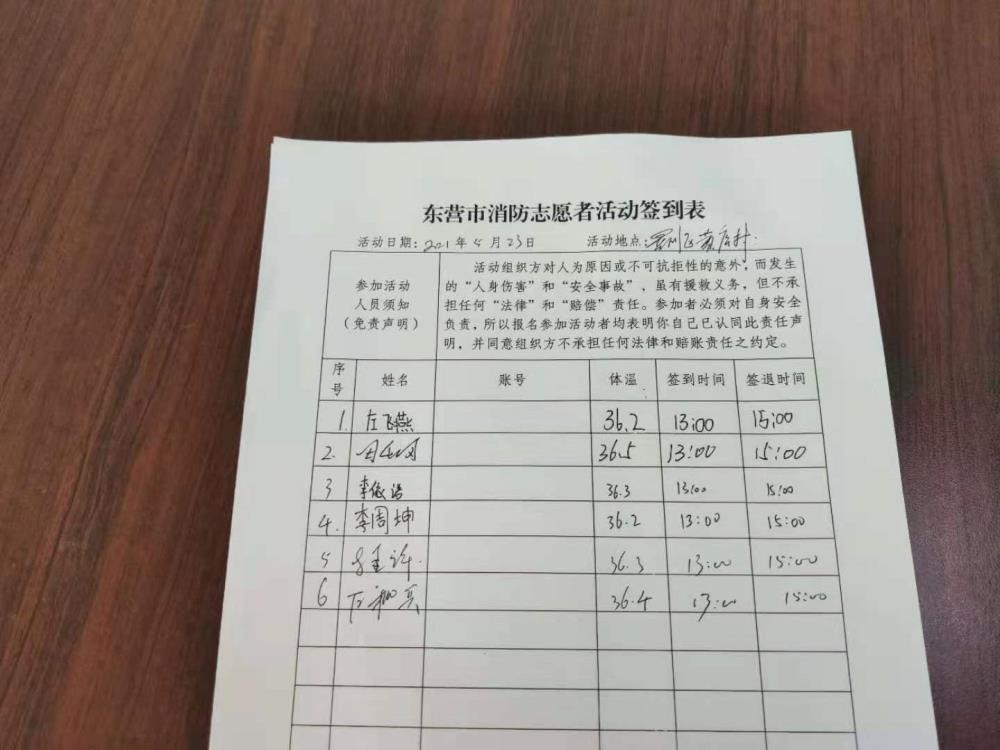 东营市消防志愿者活动签到表
活动日期：2021年5月23日 活动地点：
参加活动
人员须知
（免责声明）
活动组织方对人为原因或不可抗拒性的意外，而发生
的“人身伤害”和“安全事故”，虽有援救义务，但不承
担任何“法律”和“赔偿”责任。参加者必须对自身安全
负责，所以报名参加活动者均表明你自己已认同此责任声
明，并同意组织方不承担任何法律和赔账责任之约定。
序号 姓名 账号 体温 签到时间 签退时间
1. 左飞燕 36.2 13:00 15:00
2. 36.5 13:00 15:00
3 李俊浩 36.3 13:00 15:00
4. 李周坤 36.2 13:00 15:00
5 36.3 13:00 15:00
6 36.4 13:00 15:00